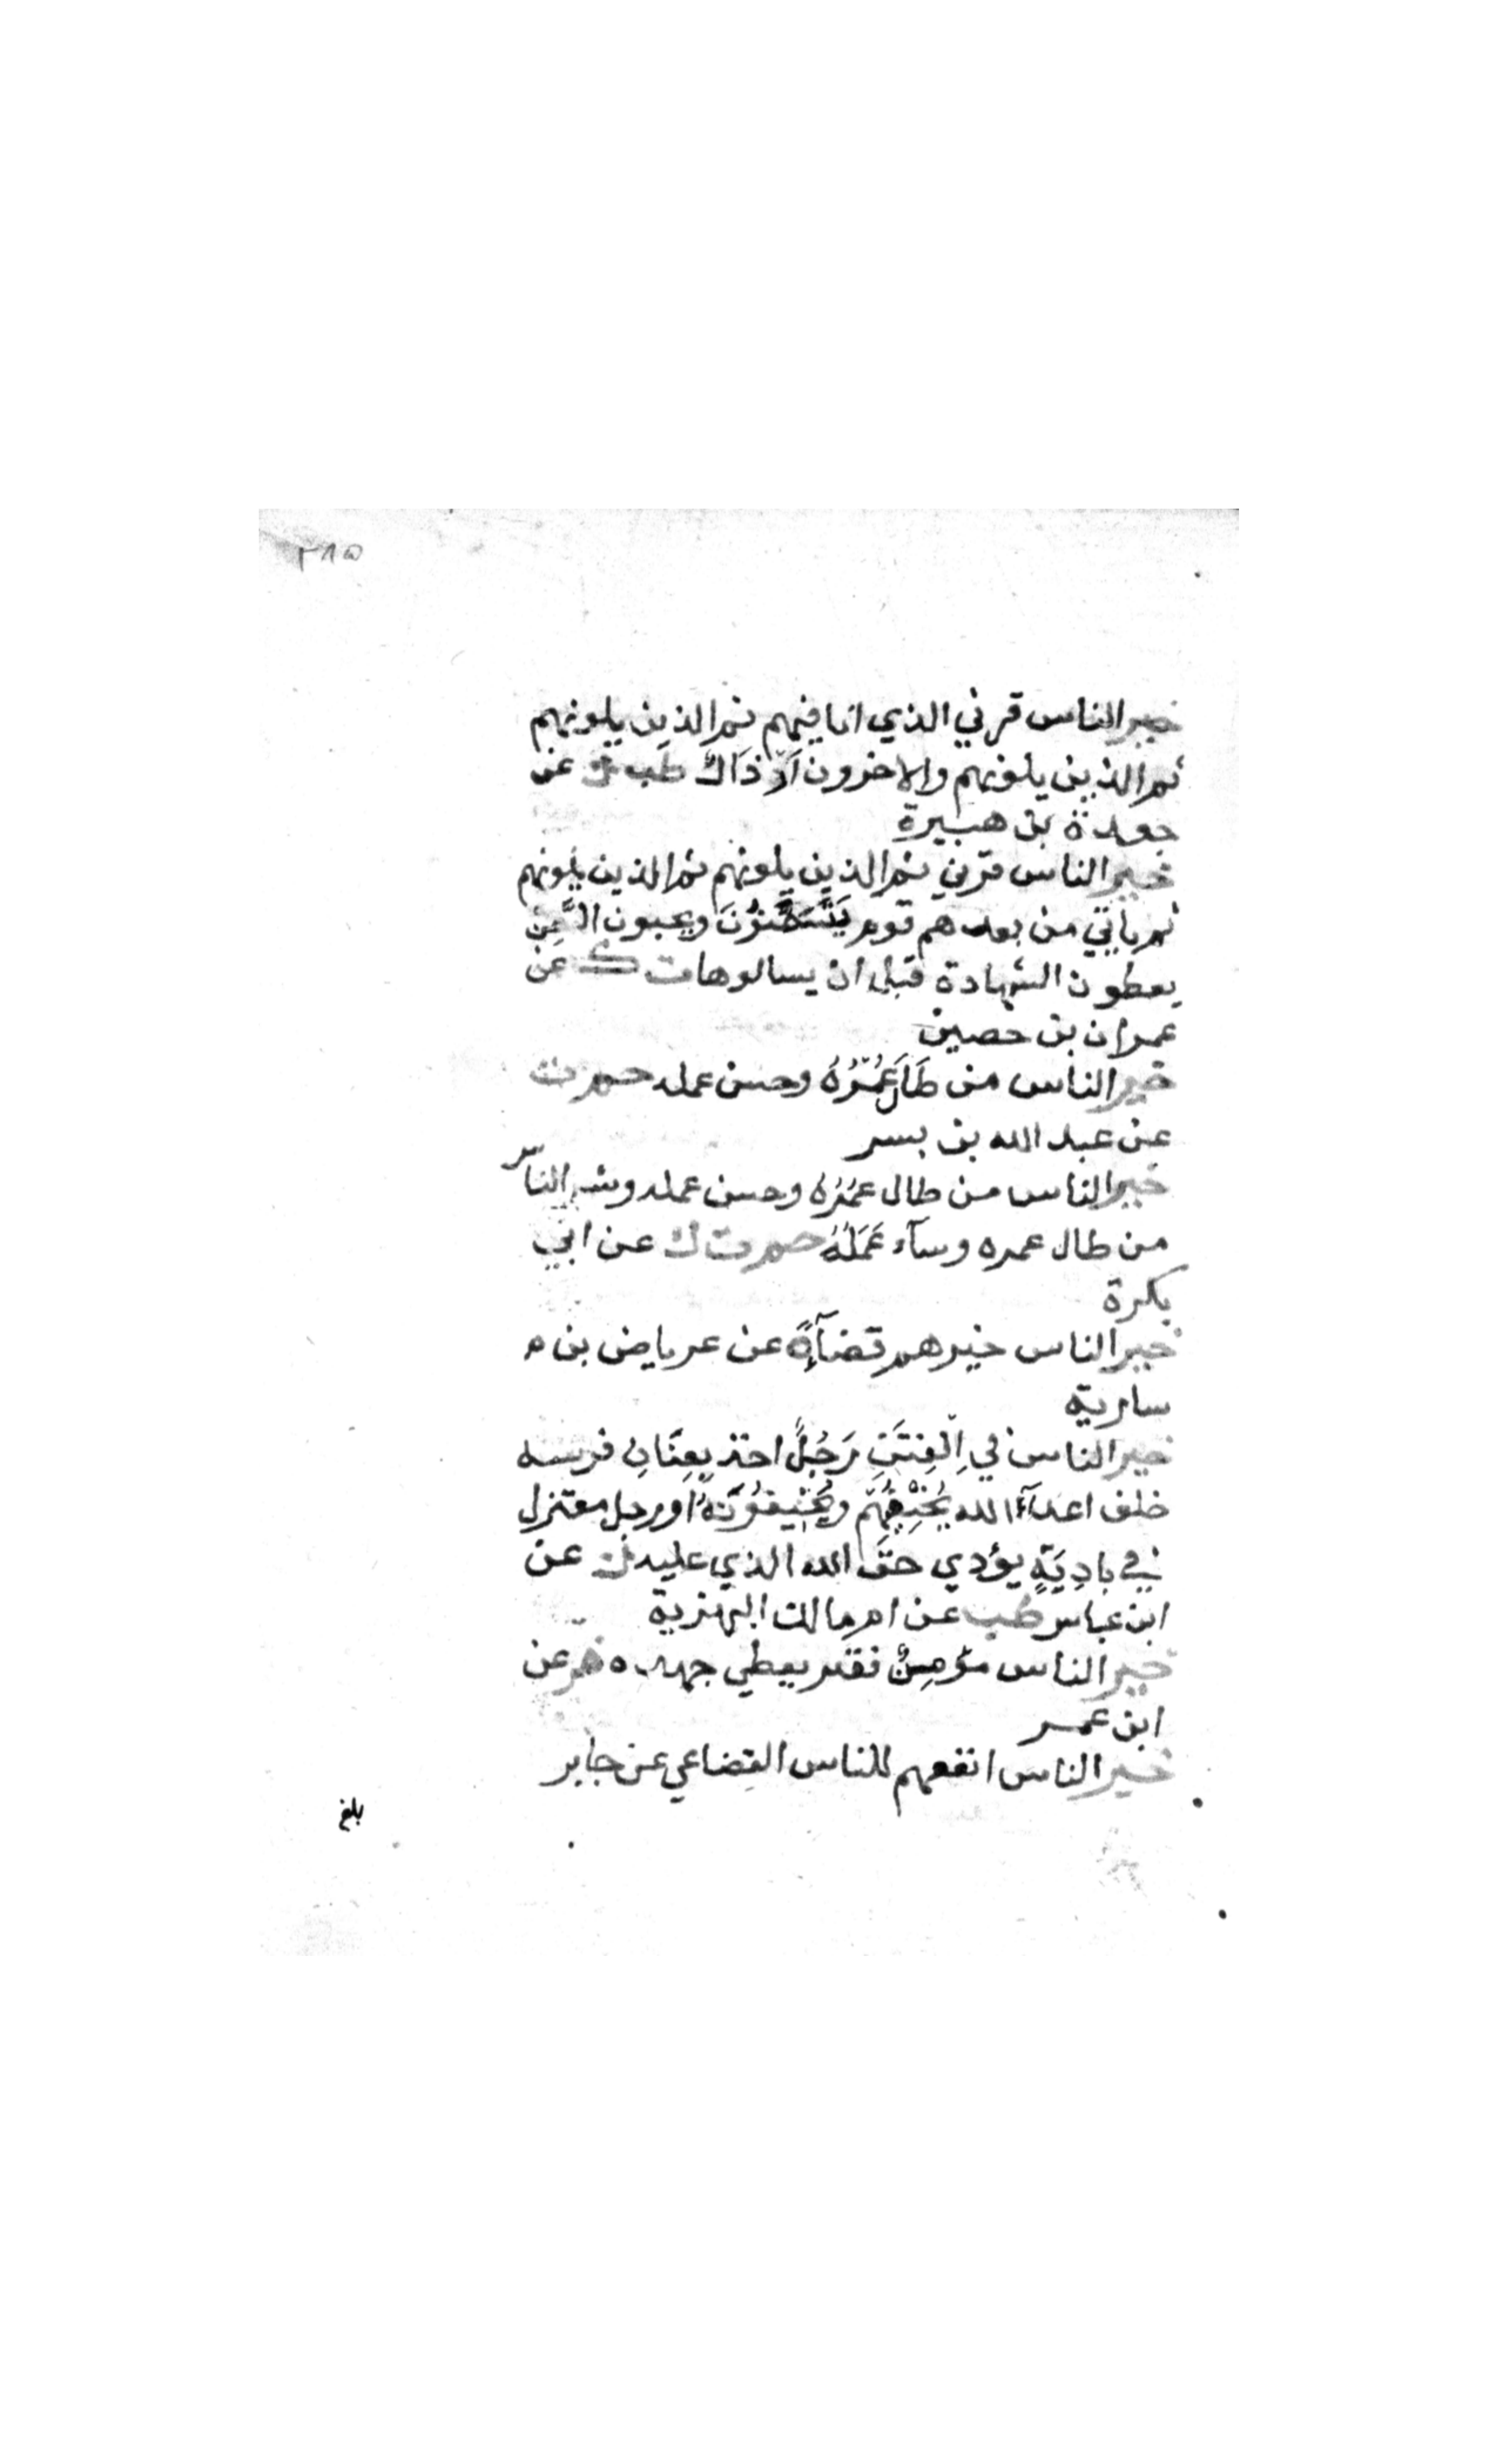 ٢١٥
خير الناس قرني الذي انا فيهم ثم الذين يلونهم
ثم الذين يلونهم والاخرون اَرَذَاك طب ك عن
جعدة بن هبيرة
خير الناس قرني ثم الذين يلونهم ثم الذين يلونهم
ثم ياتي من بعدهم قوم يَتَسَمَّنُوْنَ ويحبون السِّمَن
يعطون الشهادة قبل ان يسالوها ت ك عن
عمران بن حصين
خير الناس من طَالَ عُمُرُهُ وحسن عمله حم ت
عن عبد الله بن بسر
خير الناس من طال عمُرُهُ وحسن عمله وشر الناس
من طال عمره وسآء عَمَلُهُ حم ت ك عن ابي
بكرة
خير الناس خيرهم قضآءً ه عن عرباض بن ه
سارية
خير الناس في الْفِتَنِ رَجُلٌ اخذ بِعِنَانِ فرسه
خلف اعدآء الله يُخِيْفُهُمْ ويُخِيْفُوْنَهُ او رجل معتزل
في بادِيَةٍ يؤدي حَقَّ الله الذي عليه ك عن
ابن عباس طب عن ام مالك البهزية
خير الناس مؤمِنٌ فقير يعطي جهده فر عن
ابن عمر
خير الناس انفعهم للناس القضاعي عن جابر
بلغ